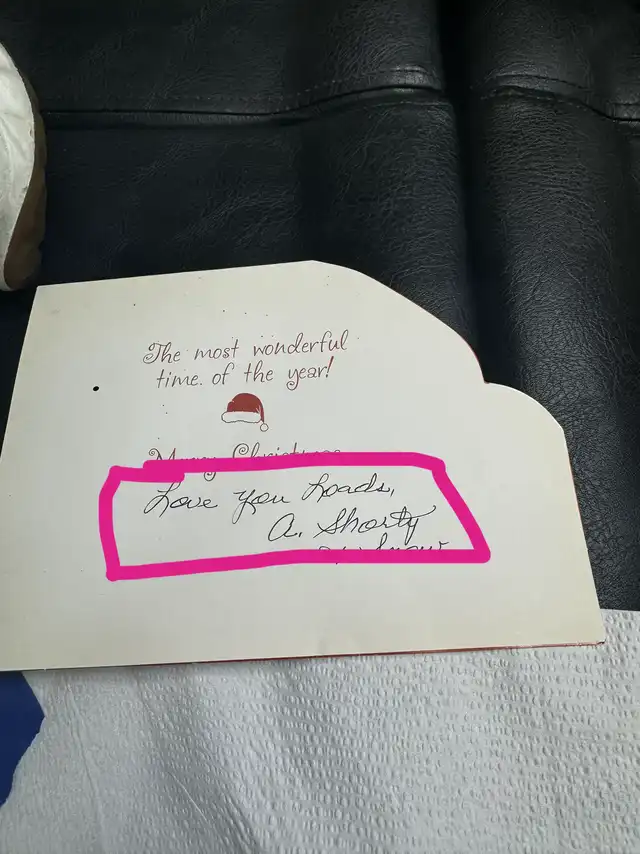 The most wonderful
time of the year!
Merry Christmas
Love You Loads,
A. Shorty